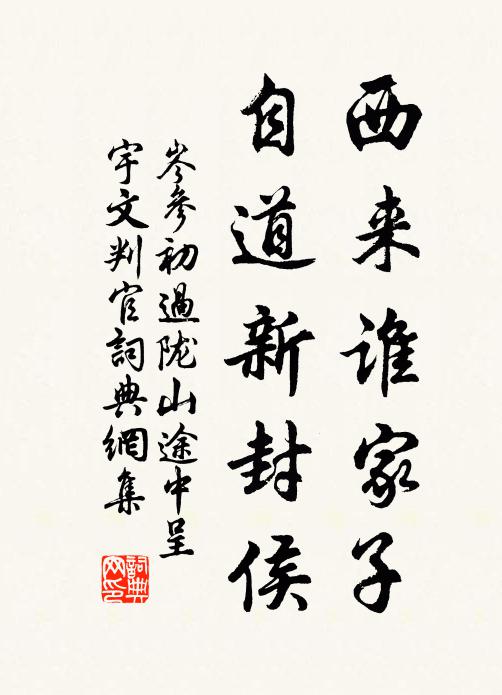 西来谁家子
自道新封侯
岑参初過陇山途中呈
宇文判官詞典網集
詞典
网印